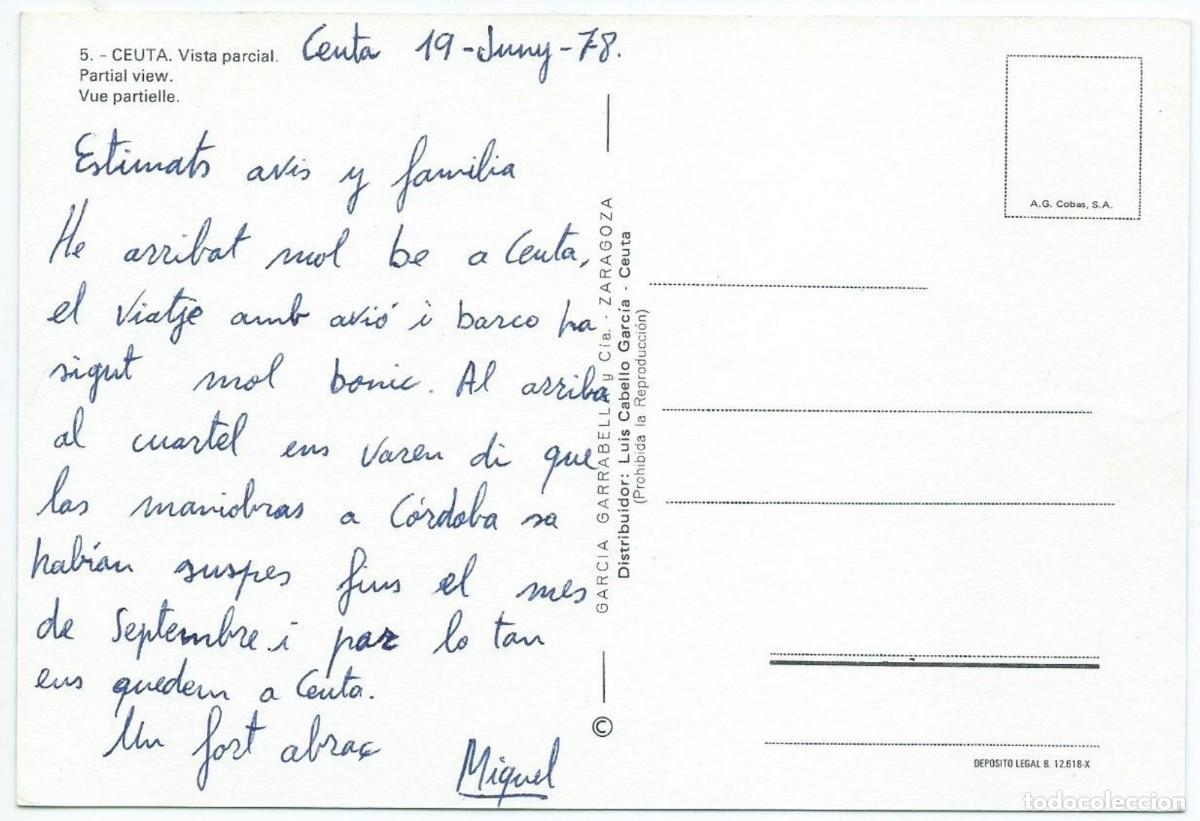 5. - CEUTA. Vista parcial.
Partial view.
Vue partielle.
Ceuta 19-Juny-78.
Estimats avis y familia
He arribat mol be a Ceuta,
el viatje amb avió i barco ha
sigut mol bonic. Al arriba
al cuartel ens varen di que
las maniobras a Córdoba sa
habían suspes fins el mes
de Septembre i par lo tan
ens quedem a Ceuta.
Un fort abraç
Miquel
GARCIA GARRABELLA y Cía. - ZARAGOZA
Distribuidor: Luis Cabello García - Ceuta
(Prohibida la Reproducción)
©
A.G. Cobas, S.A.
DEPOSITO LEGAL B. 12.618-X
todocoleccion